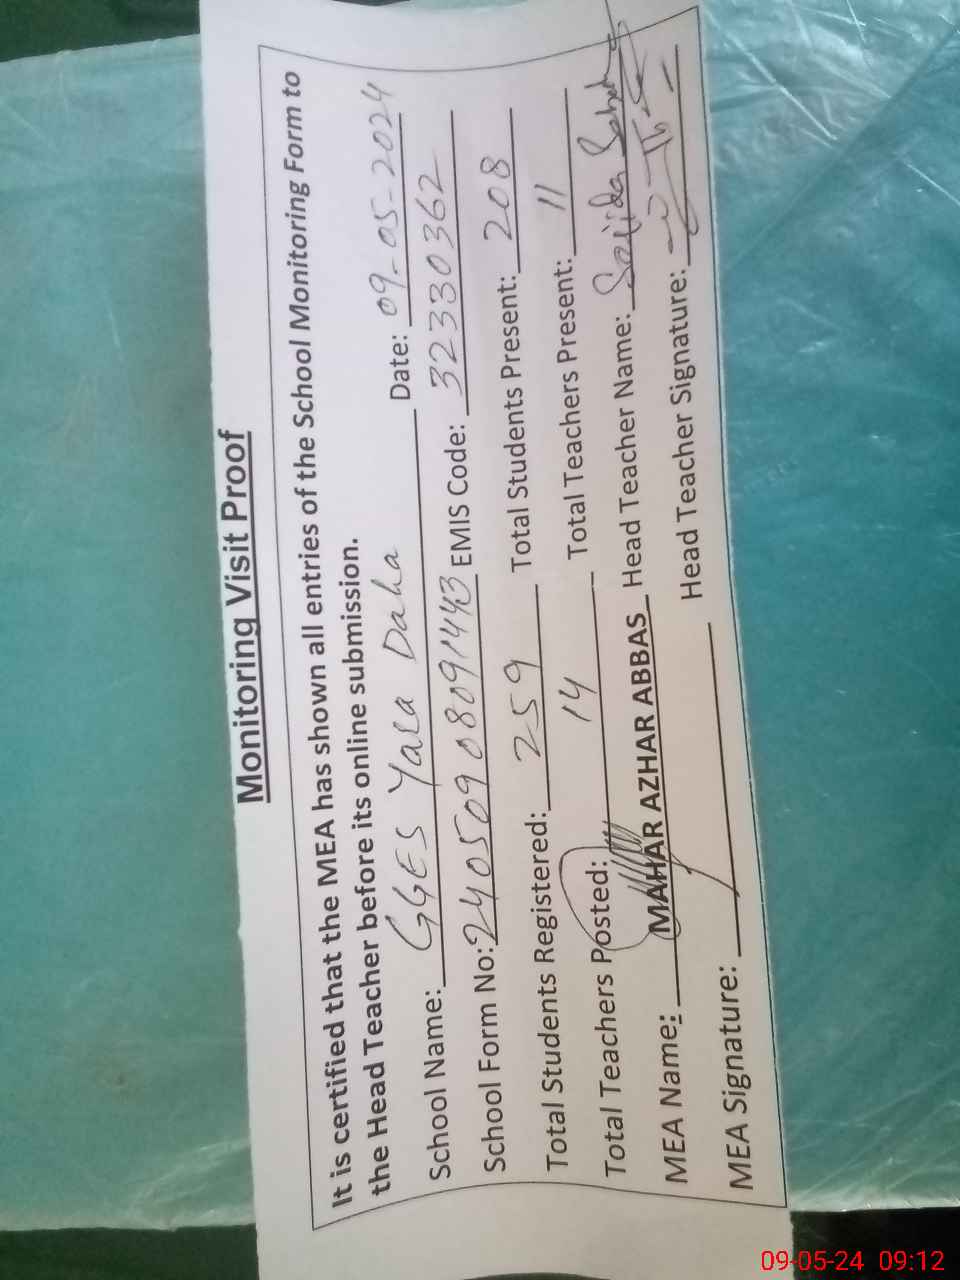 Monitoring Visit Proof
It is certified that the MEA has shown all entries of the School Monitoring Form to
the Head Teacher before its online submission.
School Name: GGES Yara Daha Date: 09-05-2024
School Form No: 24050908091443 EMIS Code: 32330362
Total Students Registered: 259 Total Students Present: 208
Total Teachers Posted: 14 Total Teachers Present: 11
MEA Name: MAHAR AZHAR ABBAS Head Teacher Name: Sajida
MEA Signature: Head Teacher Signature:
09-05-24 09:12